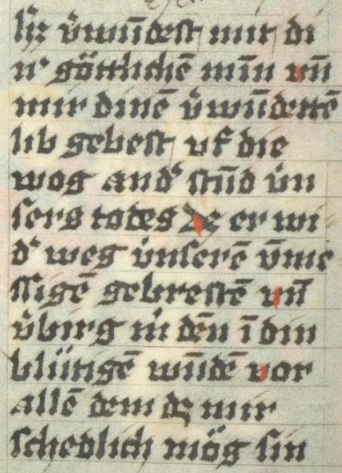 hʒ v̾wūdest mit di
nʳ göttlichē min vn̄
mir dinē v̾wūdettē
lib gebest vf die
wog and̾ stūd vn
sers todes dc er wi
d̾ weg vnserē v̾me
ssigē gebrestē vn̄
v̾birg in dēn ī din
blütigē wūdē vor
allē dem dʒ mir
schedlich mög sin